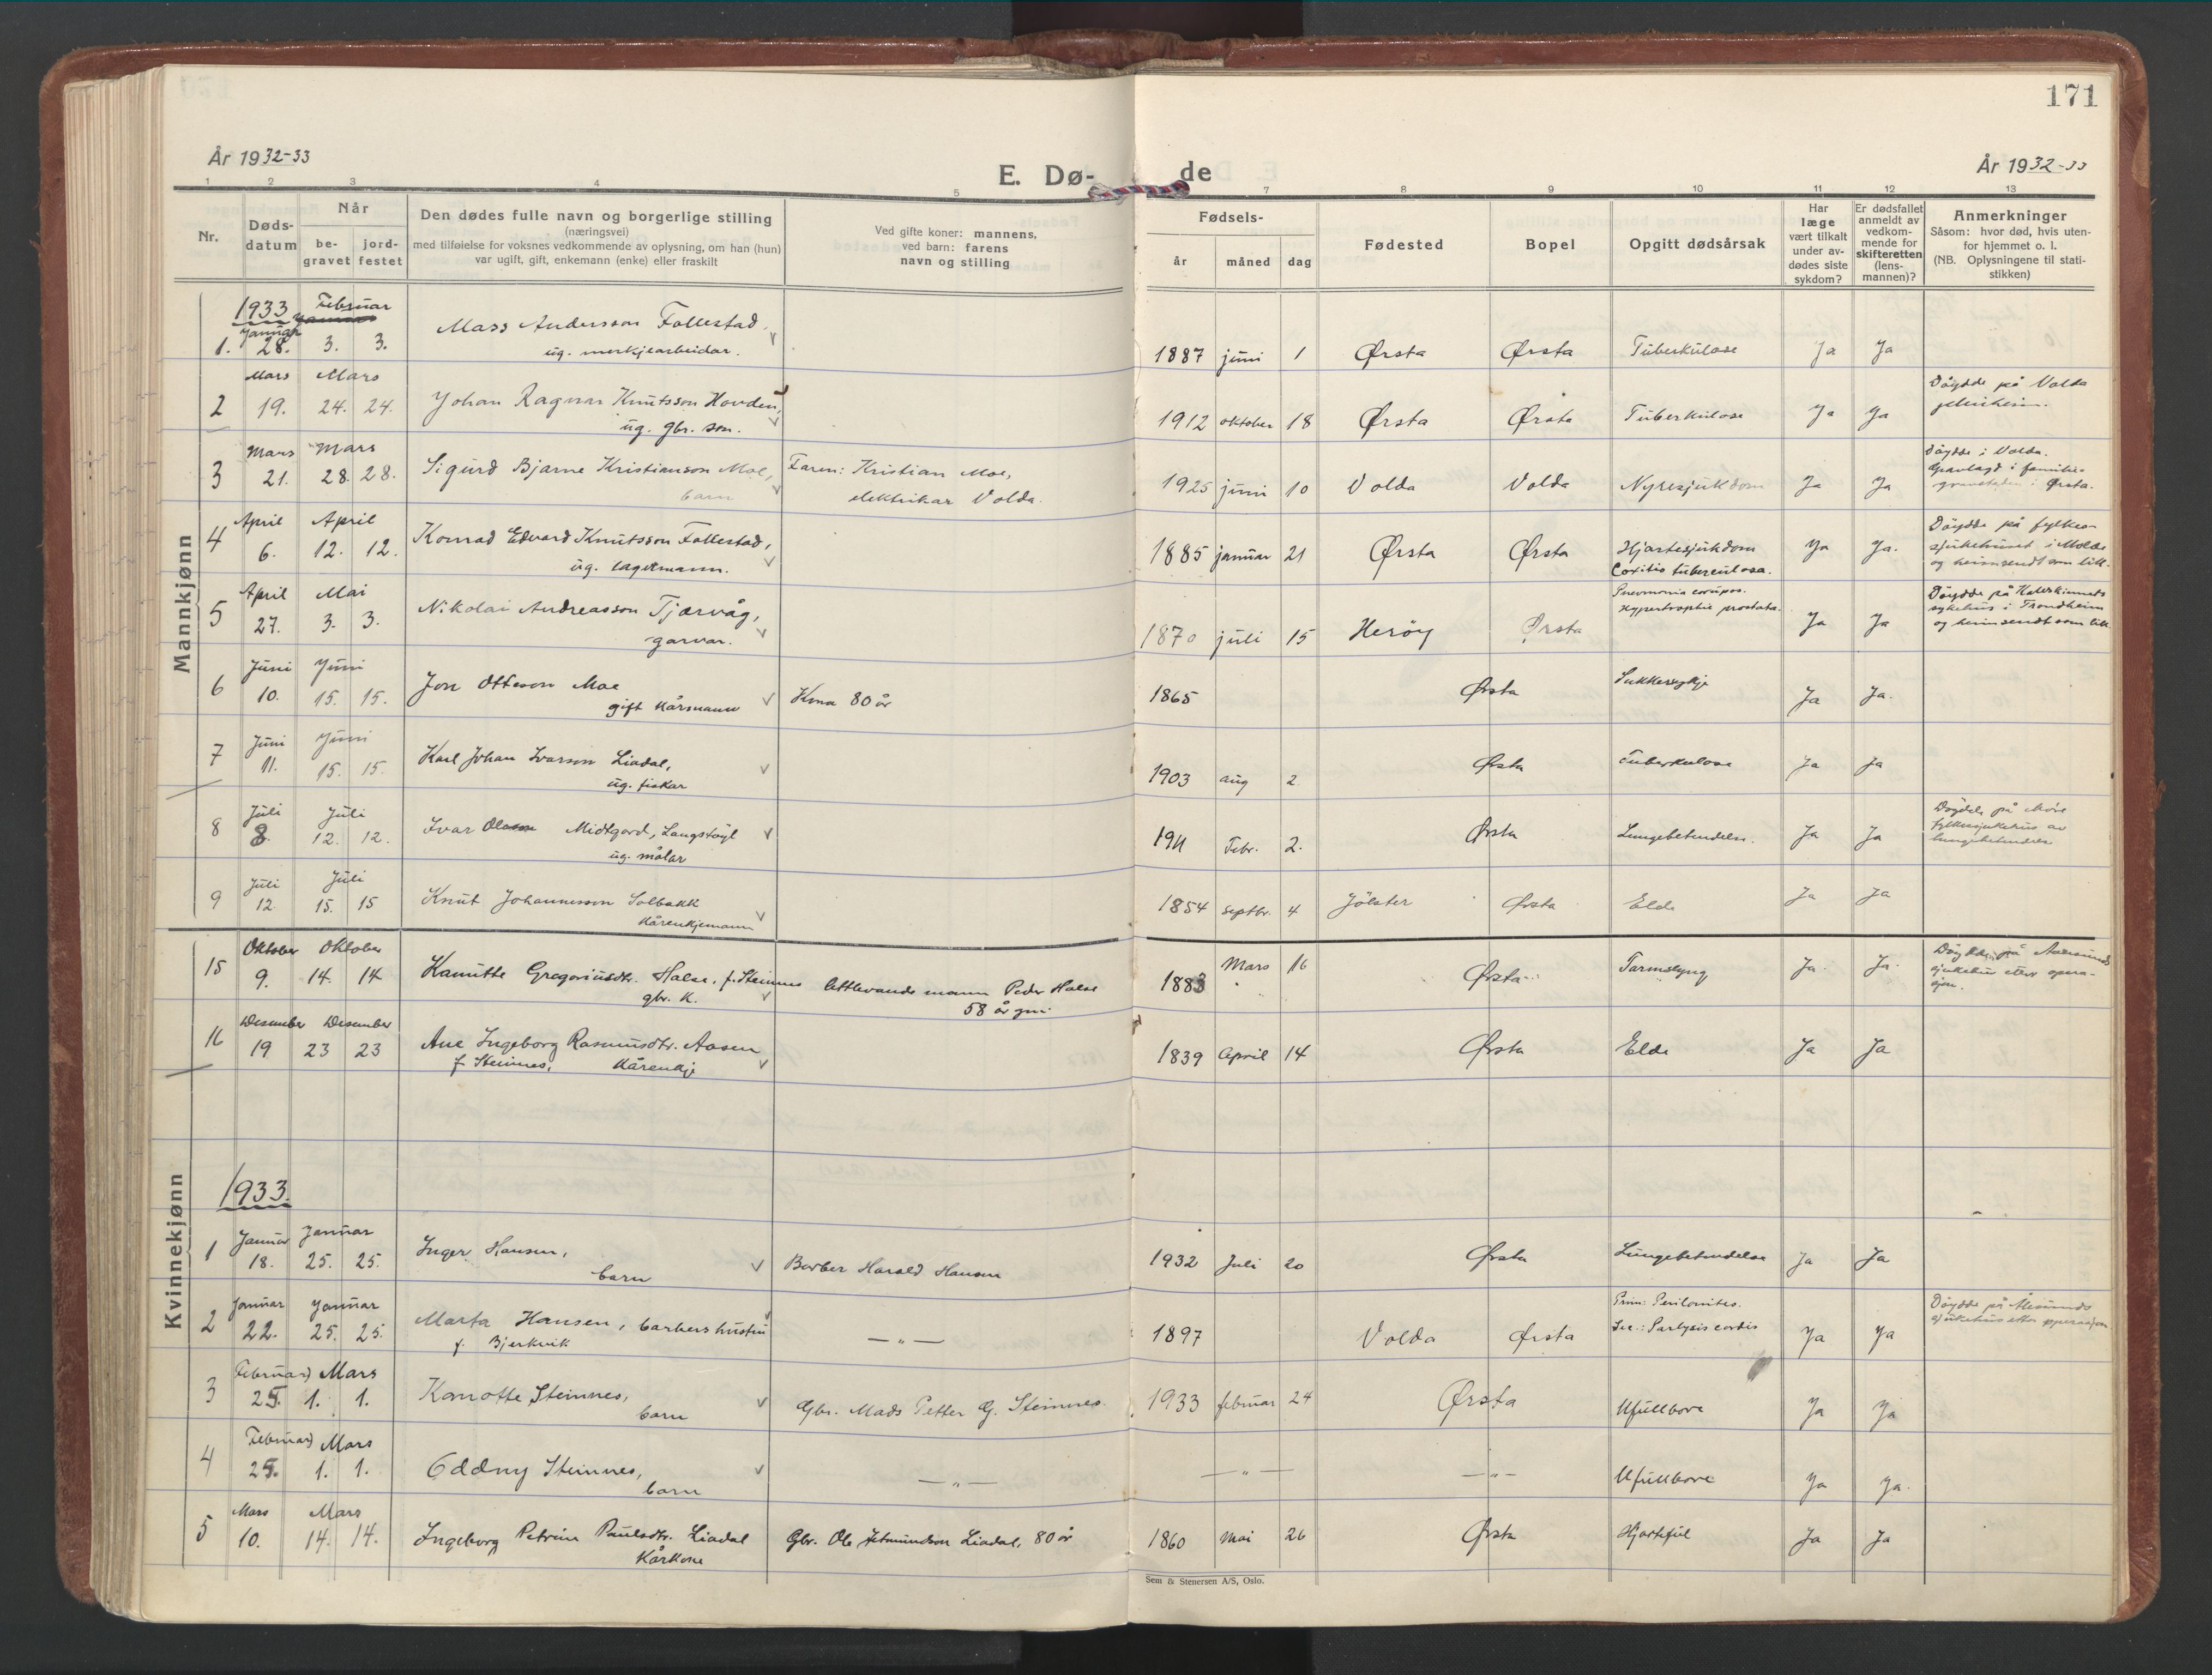 171
År 1932-33
E. Dø-
de
År 1932-33
1 2 3 4 5 7 8 9 10 11 12 13
Nr.
Døds-
datum
Når
be-
gravet
jord-
festet
Den dødes fulle navn og borgerlige stilling
(næringsvei)
med tilføielse for voksnes vedkommende av oplysning, om han (hun)
var ugift, gift, enkemann (enke) eller fraskilt
Ved gifte koner: mannens,
ved barn: farens
navn og stilling
Fødsels-
år måned dag
Fødested
Bopel
Opgitt dødsårsak
Har
læge
vært tilkalt
under av-
dødes siste
sykdom?
Er dødsfallet
anmeldt av
vedkom-
mende for
skifteretten
(lens-
mannen)?
Anmerkninger
Såsom: hvor død, hvis uten-
for hjemmet o. l.
(NB. Oplysningene til stati-
stikken)
Mannkjønn
1933 Februar
Januar
1. 28. 3. 3. Mass Andersson Follestad
ug. merkjearbeidar.
1887 juni 1 Ørsta Ørsta Tuberkulose Ja Ja
Mars Mars
2 19. 24. 24. Johan Ragnar Knutsson Hovden,
ug. gbr. son.
1912 oktober 18 Ørsta Ørsta Tuberkulose Ja Ja
Døydde på Volda
Mars Mars
3 21. 28. 28. Sigurd Bjarne Kristianson Moe,
barn
Faren: Kristian Moe,
elektrikar Volda.
1925 juni 10 Volda Volda Nyresjukdom Ja Ja
Døydde i Volda.
Gravlagd i familie-
gravstaden i Ørsta.
April April
4 6. 12. 12. Konrad Edvard Knutsson Follestad,
ug. lagermann.
1885 januar 21 Ørsta Ørsta Hjartesjukdom
Coxitis tuberculosa.
Ja Ja.
Døydde på fylkes-
sjukehuset i Molde
og heimsendt som lik.
April Mai
5 27. 3. 3. Nikolai Andreasson Tjørvåg,
garvar.
1870 juli 15 Herøy Ørsta
Pneumonia
Hypertrophia prostata.
Ja Ja
Døydde på
sykehus i Trondheim
og heimsendt som lik
Juni Juni
6 10. 15. 15. Jon Otteson Moe
gift kårmann
Kona 80 år
1865 Ørsta Sukkersykje Ja Ja.
Juni Juni
7 11. 15. 15. Karl Johan Ivarson Liadal,
ug. fiskar
1903 aug 2 Ørsta Tuberkulose Ja Ja
Juli Juli
8 8. 12. 12. Ivar Midtgard, Langstøyl
ug. målar
1911 Febr. 2. Ørsta Lungebetendelse. Ja Ja
Døydde på Møre
fylkessjukehus av
lungebetendelse
Juli Juli
9 12 15. 15 Knut Johannesson Solbakk
Kårenkjemann
1854 septbr. 4 Jölster Ørsta Elde Ja Ja
Oktober Oktober
15 9. 14. 14 Kanutte Gregoriusdtr. Halse, f. Steinnes
gbr. k.
Attlevande mann Peder Halse
58 år gml.
1883 Mars 16 Ørsta Tarmslyng Ja Ja
Døydde på Aalesunds
sjukehus etter opera-
sjon.
Desember Desember
16 19 23 23 Ane Ingeborg Rasmusdtr. Aasen
f. Steinnes, Kårenkje
1839 April 14 Ørsta Elde Ja Ja
Kvinnekjønn
1933.
Januar Januar
1 18. 25. 25. Inger Hansen,
barn
Barber Harald Hansen
1932 Juli 20 Ørsta Lungebetendelse Ja Ja
Januar Januar
2 22. 25. 25. Marta Hansen, barbershustru
f. Bjerkvik
— " —
1897 Volda Ørsta
Prim: Peritonites.
Sec.: Parlysis cordis
Ja Ja
Døydde på Ålesunds
sjukehus etter operasjon
Februar Mars
3 25. 1. 1. Kanotte Steinnes,
barn
Gbr. Mads Petter G. Steinnes.
1933 februar 24 Ørsta Ufullbore Ja Ja
Februar Mars
4 25. 1. 1. Oddny Steinnes,
barn
— " —
— " — — " — Ufullbore Ja Ja.
Mars Mars
5 10. 14. 14. Ingeborg Petrine Paulsdtr. Liadal
Kårkone
Gbr. Ole Liadal, 80 år
1860 Mai 26 Ørsta Hjartefeil Ja Ja
Sem & Stenersen A/S, Oslo.